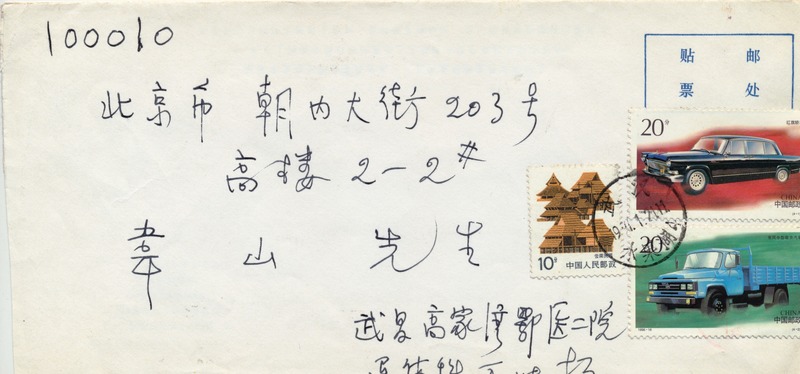 100010
贴 邮
票 处
北京市 朝内大街203号
高楼 2-2#
韦 山 先生
20分
中国邮政
20分
中国邮政
10分
中国人民邮政
武昌高家湾鄂医二院